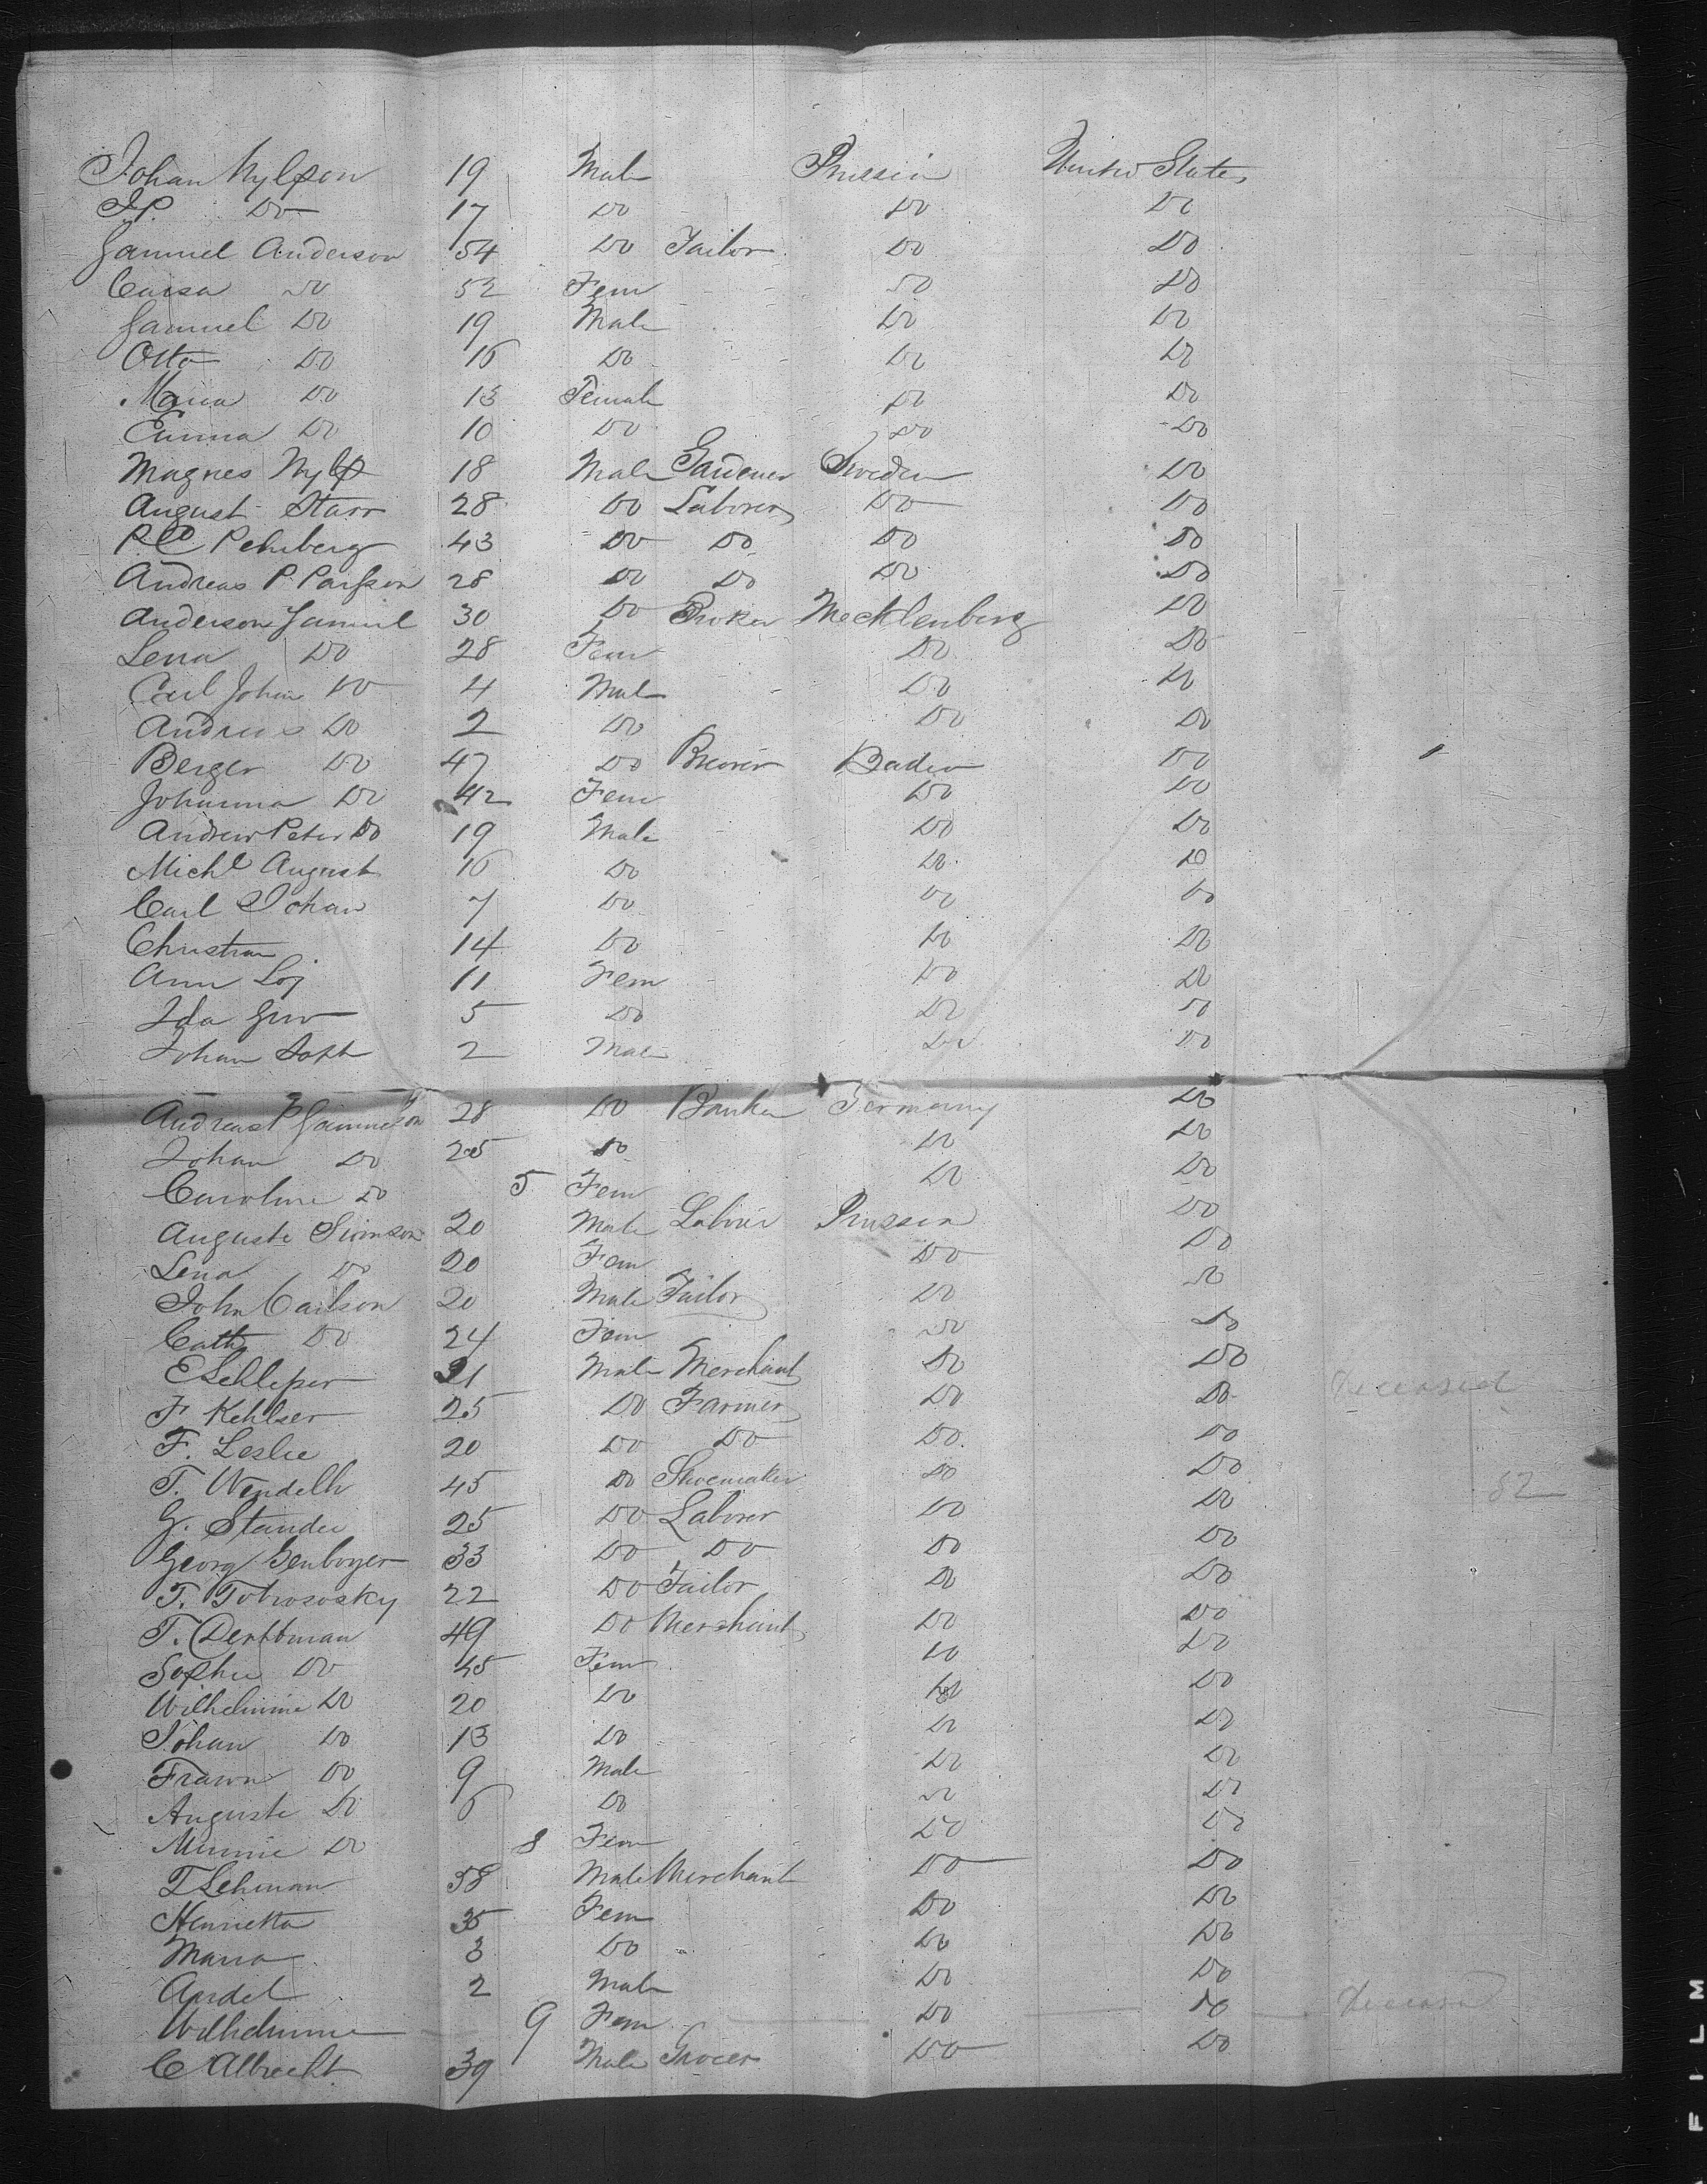 Johan Nylson 19 Male Prussia United States
J.P. Do 17 Do Do Do
Samuel Anderson 54 Do Tailor Do Do
Caisa Do 52 Fem Do Do
Samuel Do 19 Male Do Do
Otto Do 16 Do Do Do
Maria Do 13 Female Do Do
Emma Do 10 Do Do Do
Magnes 18 Male Gardener Sweden Do
August Starr 28 Do Laborer Do Do
P.C Pehrberg 43 Do Do Do Do
Andreas P. 28 Do Do Do Do
Anderson Samuel 30 Do Broker Mecklenberg Do
Lena Do 28 Fem Do Do
Carl Johan Do 4 Male Do Do
Andreas Do 2 Do Do Do
Berger Do 47 Do Brewer Baden Do
Johanna Do 42 Fem Do Do
Andrew Peter Do 19 Male Do Do
Michl August 16 Do Do Do
Carl Johan 7 Do Do Do
Christian 14 Do Do Do
Ann 11 Fem Do Do
Ida 5 Do Do Do
Johan 2 Male Do Do
Andreas P Samuelson 28 Do Banker Germany Do
Johan Do 25 Do Do Do
Caroline Do 5 Fem Do Do
Auguste Simson 20 Male Laborer Prussia Do
Lena Do 20 Fem Do Do
John Carlson 20 Male Tailor Do Do
Cath Do 24 Fem Do Do
E Schleper 31 Male Merchant Do Do
F Kehlser 25 Do Farmer Do Do deceased
F. Leslie 20 Do Do Do Do
T. Wendelh 45 Do Shoemaker Do Do 52
G. Stander 25 Do Laborer Do Do
Georg 33 Do Do Do Do
T. Tobrososky 22 Do Tailor Do Do
T. Derttman 49 Do Merchant Do Do
Sophie Do 45 Fem Do Do
Wilhelmine Do 20 Do Do Do
Johan Do 13 Do Do Do
Do 9 Male Do Do
Auguste Do 6 Do Do Do
Minnie Do 8 Fem Do Do
T Lehman 38 Male Merchant Do Do
Henrietta 35 Fem Do Do
Maria 3 Do Do Do
2 Male Do Do
Wilhelmine 9 Fem Do Do deceased
C Albrecht 39 Male Grocer Do Do
FILM